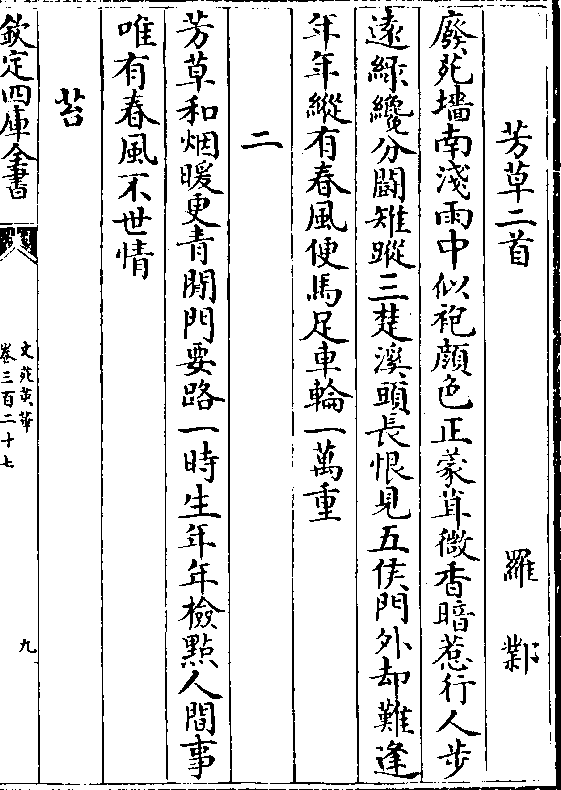 芳草二首　羅鄴
廢苑墻南淺雨中似袍顔色正蒙茸微香暗惹行人步
遠綠纔分鬭雉蹤三楚溪頭長恨見五侯門外却難逢
年年縱有春風便馬足車輪一萬重
二
芳草和烟暖更青閒門要路一時生年年檢點人間事
唯有春風不世情
苔
欽定四庫全書
文苑英華
卷三百二十七
九